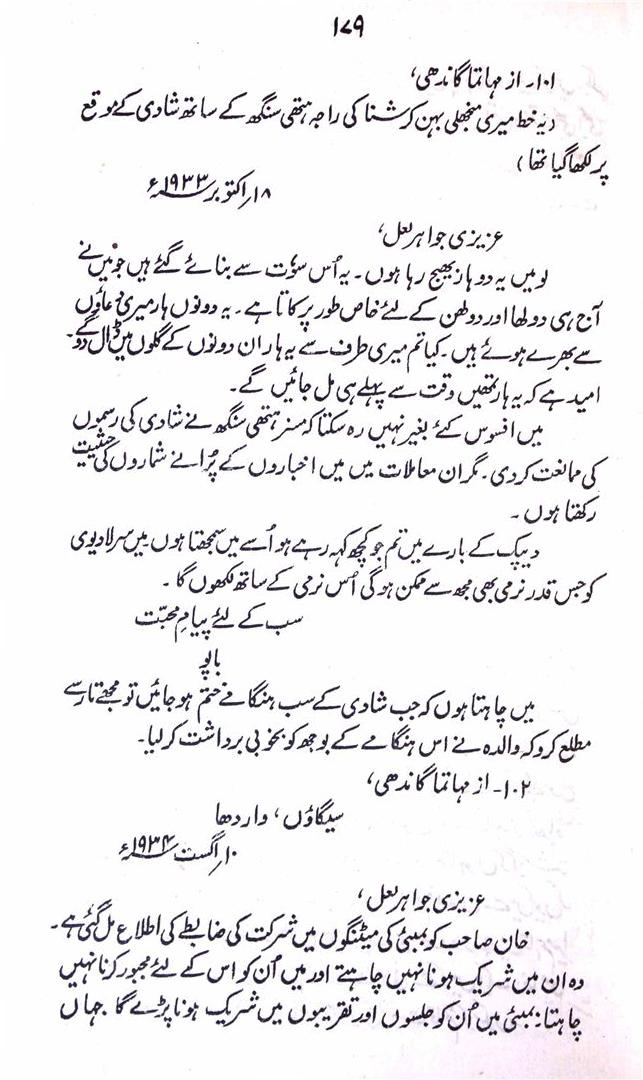 ۱۷۹
۱۰۱- از مہاتما گاندھی،
(یہ خط میری منجھلی بہن کرشنا کی راجہ ہتھی سنگھ کے ساتھ شادی کے موقع
پر لکھا گیا تھا)
۱۸ اکتوبر ۱۹۳۳ء
عزیزی جواہر لعل،
لو میں یہ دو ہار بھیج رہا ہوں۔ یہ اُس سُوت سے بنائے گئے ہیں جو میں نے
آج ہی دولھا اور دولھن کے لئے خاص طور پر کاتا ہے۔ یہ دونوں ہار میری دعاؤں
سے بھرے ہوئے ہیں۔ کیا تم میری طرف سے یہ ہار ان دونوں کے گلوں میں ڈال دو گے۔
امید ہے کہ یہ ہار تمھیں وقت سے پہلے ہی مل جائیں گے۔
میں افسوس کئے بغیر نہیں رہ سکتا کہ مسز ہتھی سنگھ نے شادی کی رسموں
کی ممانعت کر دی۔ مگر ان معاملات میں میں اخباروں کے پُرانے شماروں کی حیثیت
رکھتا ہوں۔
دیپک کے بارے میں تم جو کچھ کہہ رہے ہو اُسے میں سمجھتا ہوں میں سرلا دیوی
کو جس قدر نرمی بھی مجھ سے ممکن ہو گی اُس نرمی کے ساتھ لکھوں گا۔
سب کے لئے پیامِ محبّت
باپو
میں چاہتا ہوں کہ جب شادی کے سب ہنگامے ختم ہو جائیں تو مجھے تار سے
مطلع کرو کہ والدہ نے اس ہنگامے کے بوجھ کو بخوبی برداشت کر لیا۔
۱۰۲- از مہاتما گاندھی،
سیگاؤں، واردھا
۱۰ اگست ۱۹۳۴ء
عزیزی جواہر لعل،
خان صاحب کو بمبئی کی میٹنگوں میں شرکت کی ضابطے کی اطلاع مل گئی ہے۔
وہ ان میں شریک ہونا نہیں چاہتے اور میں اُن کو اس کے لئے مجبور کرنا نہیں
چاہتا۔ بمبئی میں اُن کو جلسوں اور تقریبوں میں شریک ہونا پڑے گا جہاں